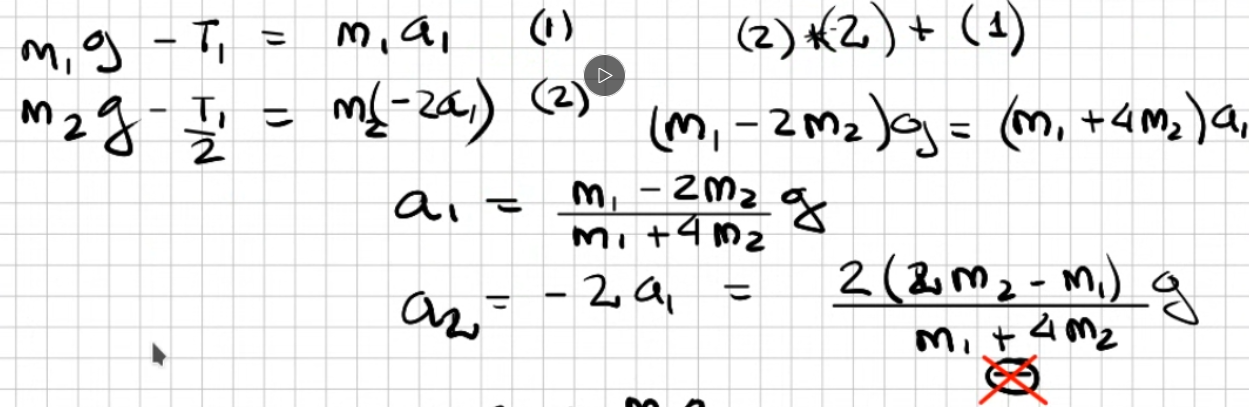 m₁g - T₁ = m₁a₁ (1) (2)*(-2) + (1)
m₂g - T₁/2 = m₂(-2a₁) (2) (m₁ - 2m₂)g = (m₁ + 4m₂)a₁
a₁ = (m₁ - 2m₂)/(m₁ + 4m₂) g
a₂ = -2a₁ = 2(2m₂ - m₁)/(m₁ + 4m₂) g